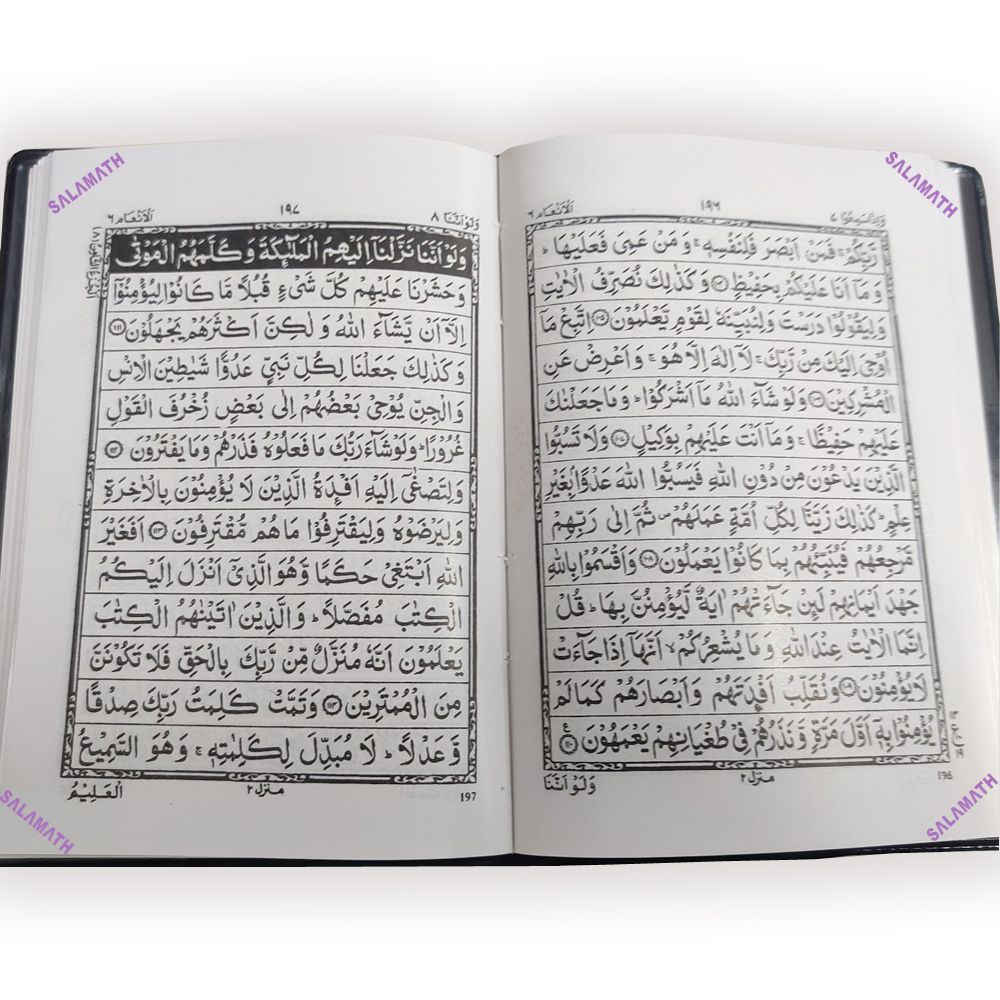 SALAMATH
SALAMATH
الانعام ٦
١٩٦
رَبِّكُمْ ۚ فَمَنْ اَبْصَرَ فَلِنَفْسِهٖ ۚ وَ مَنْ عَمِیَ فَعَلَیْهَا ؕ
وَ مَاۤ اَنَا عَلَیْكُمْ بِحَفِیْظٍ ﴿۱۰۴﴾ وَ كَذٰلِكَ نُصَرِّفُ الْاٰیٰتِ
وَ لِیَقُوْلُوْا دَرَسْتَ وَ لِنُبَیِّنَهٗ لِقَوْمٍ یَّعْلَمُوْنَ ﴿۱۰۵﴾ اِتَّبِعْ مَاۤ
اُوْحِیَ اِلَیْكَ مِنْ رَّبِّكَ ۚ لَاۤ اِلٰهَ اِلَّا هُوَ ۚ وَ اَعْرِضْ عَنِ
الْمُشْرِكِیْنَ ﴿۱۰۶﴾ وَ لَوْ شَآءَ اللّٰهُ مَاۤ اَشْرَكُوْا ؕ وَ مَا جَعَلْنٰكَ
عَلَیْهِمْ حَفِیْظًا ۚ وَ مَاۤ اَنْتَ عَلَیْهِمْ بِوَكِیْلٍ ﴿۱۰۷﴾ وَ لَا تَسُبُّوا
الَّذِیْنَ یَدْعُوْنَ مِنْ دُوْنِ اللّٰهِ فَیَسُبُّوا اللّٰهَ عَدْوًۢا بِغَیْرِ
عِلْمٍ ؕ كَذٰلِكَ زَیَّنَّا لِكُلِّ اُمَّةٍ عَمَلَهُمْ ۪ ثُمَّ اِلٰی رَبِّهِمْ
مَّرْجِعُهُمْ فَیُنَبِّئُهُمْ بِمَا كَانُوْا یَعْمَلُوْنَ ﴿۱۰۸﴾ وَ اَقْسَمُوْا بِاللّٰهِ
جَهْدَ اَیْمَانِهِمْ لَئِنْ جَآءَتْهُمْ اٰیَةٌ لَّیُؤْمِنُنَّ بِهَا ؕ قُلْ
اِنَّمَا الْاٰیٰتُ عِنْدَ اللّٰهِ وَ مَا یُشْعِرُكُمْ ۙ اَنَّهَاۤ اِذَا جَآءَتْ
لَا یُؤْمِنُوْنَ ﴿۱۰۹﴾ وَ نُقَلِّبُ اَفْـِٕدَتَهُمْ وَ اَبْصَارَهُمْ كَمَا لَمْ
یُؤْمِنُوْا بِهٖۤ اَوَّلَ مَرَّةٍ وَّ نَذَرُهُمْ فِیْ طُغْیَانِهِمْ یَعْمَهُوْنَ ﴿۱۱۰﴾
وَلَوْ اَنَّنَا
منزل ٢
196
وَلَوْ اَنَّنَا ٨
١٩٧
الانعام ٦
وَ لَوْ اَنَّنَا نَزَّلْنَاۤ اِلَیْهِمُ الْمَلٰٓئِكَةَ وَ كَلَّمَهُمُ الْمَوْتٰی
وَ حَشَرْنَا عَلَیْهِمْ كُلَّ شَیْءٍ قُبُلًا مَّا كَانُوْا لِیُؤْمِنُوْۤا
اِلَّاۤ اَنْ یَّشَآءَ اللّٰهُ وَ لٰكِنَّ اَكْثَرَهُمْ یَجْهَلُوْنَ ﴿۱۱۱﴾
وَ كَذٰلِكَ جَعَلْنَا لِكُلِّ نَبِیٍّ عَدُوًّا شَیٰطِیْنَ الْاِنْسِ
وَ الْجِنِّ یُوْحِیْ بَعْضُهُمْ اِلٰی بَعْضٍ زُخْرُفَ الْقَوْلِ
غُرُوْرًا ؕ وَ لَوْ شَآءَ رَبُّكَ مَا فَعَلُوْهُ فَذَرْهُمْ وَ مَا یَفْتَرُوْنَ ﴿۱۱۲﴾
وَ لِتَصْغٰۤی اِلَیْهِ اَفْـِٕدَةُ الَّذِیْنَ لَا یُؤْمِنُوْنَ بِالْاٰخِرَةِ
وَ لِیَرْضَوْهُ وَ لِیَقْتَرِفُوْا مَا هُمْ مُّقْتَرِفُوْنَ ﴿۱۱۳﴾ اَفَغَیْرَ
اللّٰهِ اَبْتَغِیْ حَكَمًا وَّ هُوَ الَّذِیْۤ اَنْزَلَ اِلَیْكُمُ
الْكِتٰبَ مُفَصَّلًا ؕ وَ الَّذِیْنَ اٰتَیْنٰهُمُ الْكِتٰبَ
یَعْلَمُوْنَ اَنَّهٗ مُنَزَّلٌ مِّنْ رَّبِّكَ بِالْحَقِّ فَلَا تَكُوْنَنَّ
مِنَ الْمُمْتَرِیْنَ ﴿۱۱۴﴾ وَ تَمَّتْ كَلِمَتُ رَبِّكَ صِدْقًا
وَّ عَدْلًا ؕ لَا مُبَدِّلَ لِكَلِمٰتِهٖ ۚ وَ هُوَ السَّمِیْعُ
الْعَلِیْمُ
منزل ٢
197
SALAMATH
SALAMATH